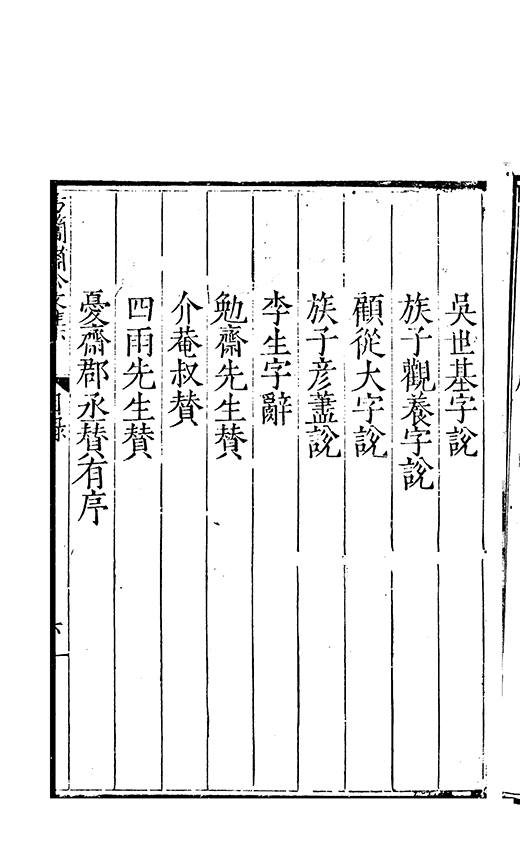 吳世基字說
族子觀養字說
顧從大字說
族子彦藎說
李生字辭
勉齋先生賛
介菴叔賛
四雨先生賛
憂齋郡丞賛有序
目錄
六